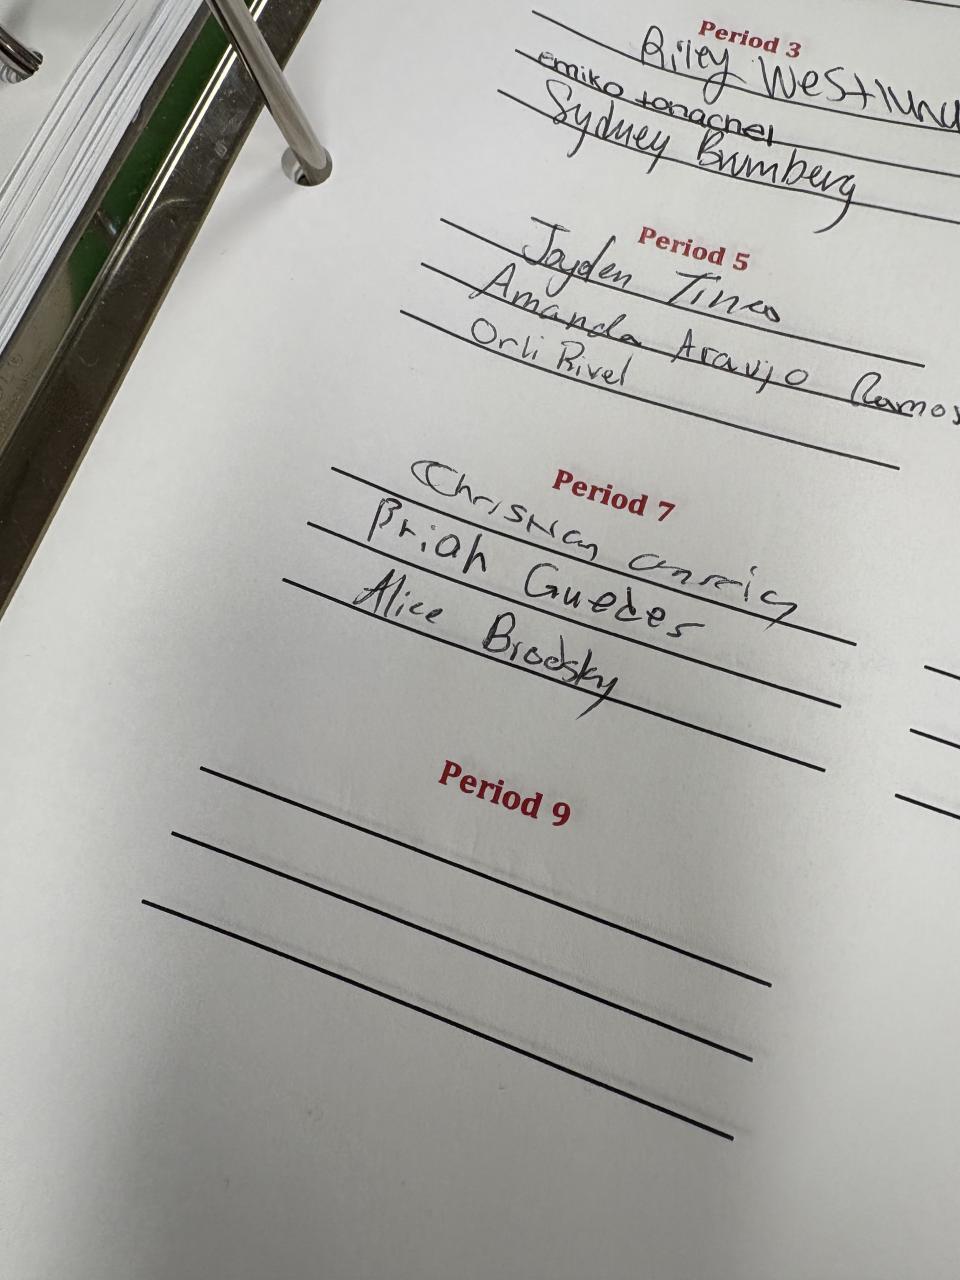 Period 3
Riley
emiko tanachel
Sydney Brumberg
Period 5
Jayden Tineo
Amanda Araujo Ramos
Orli Rivel
Period 7
Christian
Brian Guedes
Alice Brodsky
Period 9